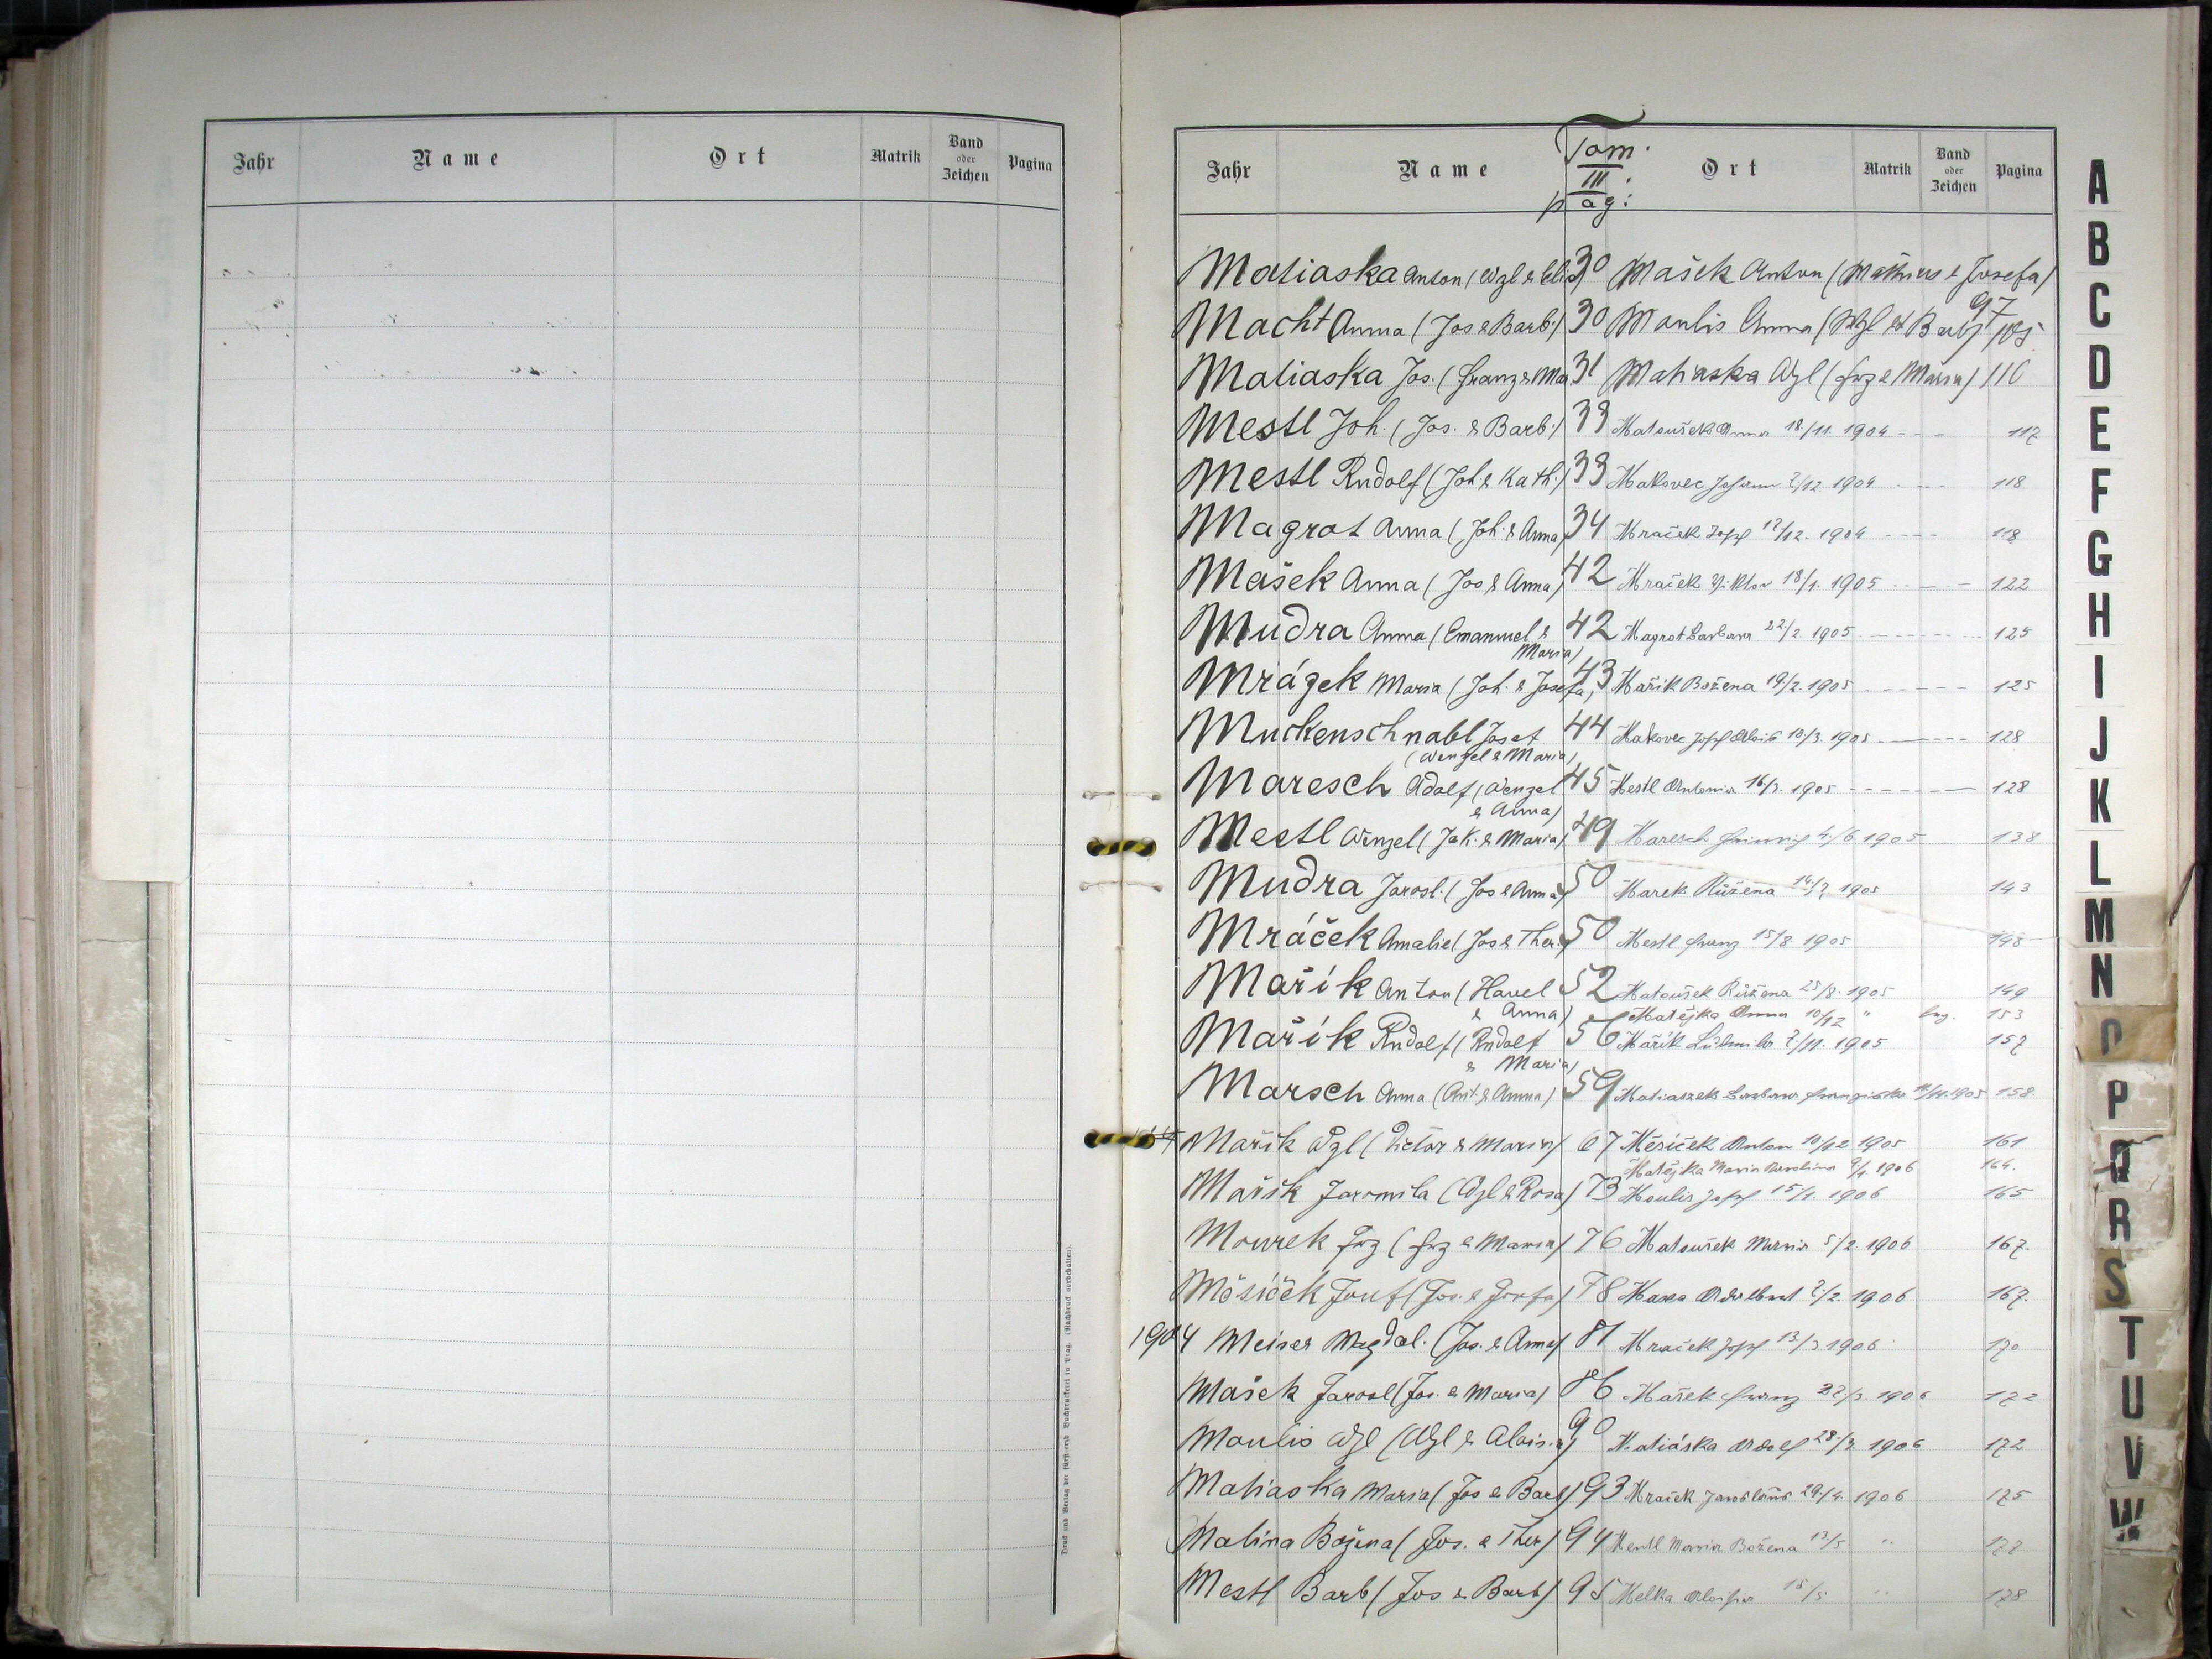 Jahr Name Ort Matrik Band oder Zeichen Pagina
Druck und Verlag der fürst-erzb. Buchdruckerei in Prag. (Nachdruck vorbehalten).
Tom. III. pag:
Jahr Name Ort Matrik Band oder Zeichen Pagina
Matiaska Anton (Wzl & Elis) 30 Mašek Anton (Mathias & Josefa) 97
Macht Anna (Jos & Barb.) 30 Moulis Anna (Wzl & Barb) 105
Matiaska Jos. (Franz & Mar 31 Matiaska Wzl (Frz & Maria) 110
Mestl Joh. (Jos. & Barb.) 33 Matoušek Anna 18/11. 1904 - - - 117
Mestl Rudolf (Joh. & Kath.) 33 Makovec Johann 2/12 1904 - - - 118
Magrot Anna (Joh. & Anna) 34 Mraček Josef 17/12. 1904 - - - - 118
Mašek Anna (Jos & Anna) 42 Mraček Viktor 18/1. 1905 - - - 122
Mudra Anna (Emanuel & Maria) 42 Magrot Barbara 22/2. 1905 - - - 125
Mrázek Maria (Joh. & Josefa) 43 Mařik Božena 19/2. 1905 - - - 125
Muckenschnabl Josef (Wenzel & Maria) 44 Makovec Josef Alois 10/3. 1905 - - - 128
Maresch Adolf (Wenzel & Anna) 45 Mestl Antonia 16/3. 1905 - - - 128
Mestl Wenzel (Jak. & Maria) 49 Maresch 4/6 1905 138
Mudra Jarosl. (Jos & Anna) 50 Marek Růžena 14/7 1905 143
Mráček Amalie (Jos & Ther.) 50 Mestl Franz 15/8 1905 148
Mařík Anton (Havel & Anna) 52 Matoušek Růžena 25/8. 1905 149
Matějka Anna 10/12 " 153
Mařík Rudolf (Rudolf & Maria) 56 Mařík Ludmila 7/11. 1905 157
Marsch Anna (Ant & Anna) 59 Matiaszek Barbara Franziska /11. 1905 158
Mařik Wzl (Victor & Maria) 67 Měsíček Anton 10/12 1905 161
Matějka Maria Karolina 9/1. 1906 164.
Mařík Jaromila (Wzl & Rosa) 73 Moulis Josef 15/1. 1906 165
Mourek Frz (Frz & Maria) 76 Matoušek Maria 5/2. 1906 167.
Měsíček Josef (Jos. & Josefa) 78 Maxa Adalbert 2/2. 1906 167.
1904 Meiser Magdal. (Jos. & Anna) 81 Mraček Josef 13/3 1906 170
Mašek Jarosl (Jos. & Maria) 86 Mašek Franz 22/3. 1906 172
Moulis Wzl (Wzl & Aloisia) 90 Matiáska Adolf 28/3. 1906 172
Matiaska Maria (Jos & Barb) 93 Mraček Jaroslaus 29/4. 1906 175
Malina Božena (Jos. & Ther) 94 Mentl Maria Božena 13/5. " 177
Mestl Barb (Jos & Barb) 95 Melka Aloisia 15/5 " 178
A
B
C
D
E
F
G
H
I
J
K
L
M
N
O
P
Q
R
S
T
U
V
W